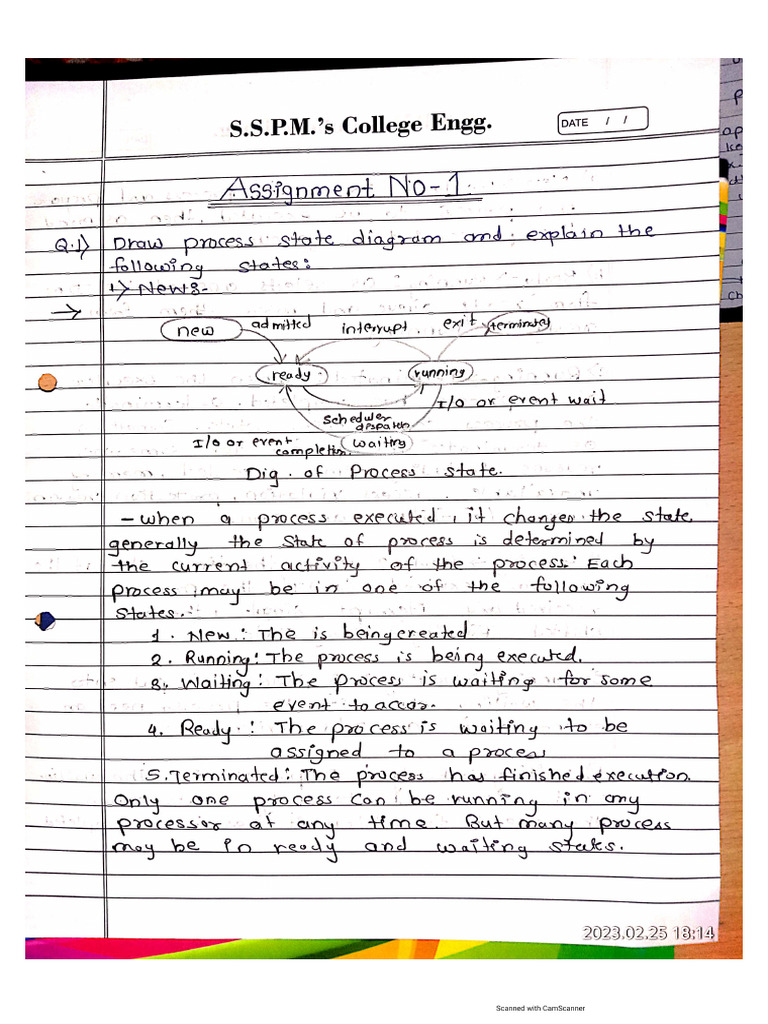 S.S.P.M.'s College Engg.
DATE / /
Assignment No-1
Q.1) Draw process state diagram and explain the
following states:
1) New:-
new admitted interrupt exit terminated
ready running
I/O or event wait
scheduler
dispatch
I/O or event
completion
waiting
Dig. of Process state.
- when a process executed, it changes the state
generally the state of process is determined by
the current activity of the process. Each
process may be in one of the following
states.
1. New: The is being created
2. Running: The process is being executed.
3. Waiting: The process is waiting for some
event to accor.
4. Ready: The process is waiting to be
assigned to a proces
5. Terminated: The process has finished execution.
Only one process can be running in any
processor at any time. But many process
may be in ready and waiting states.
2023.02.25 18:14
Scanned with CamScanner